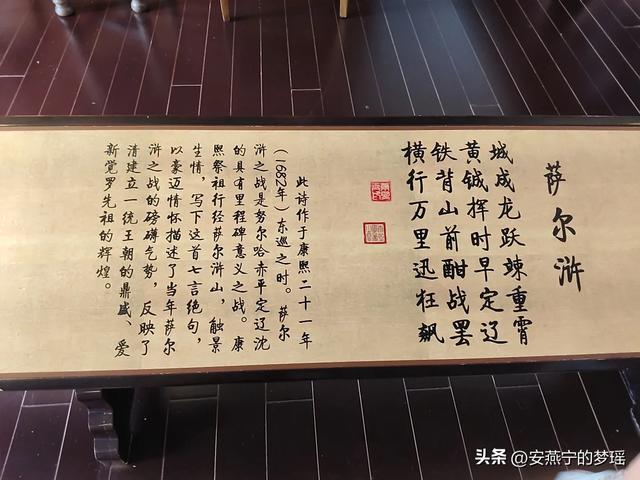 萨尔浒
城成龙跃竦重霄
黄钺挥时早定辽
铁背山前酣战罢
横行万里迅狂飙
此诗作于康熙二十一年
(1682年)东巡之时。萨尔
浒之战是努尔哈赤平定辽沈
的具有里程碑意义之战。康
熙祭祖行经萨尔浒山,触景
生情,写下这首七言绝句,
以豪迈情怀描述了当年萨尔
浒之战的磅礴气势,反映了
清建立一统王朝的鼎盛、爱
新觉罗先祖的辉煌。
头条 @安燕宁的梦瑶